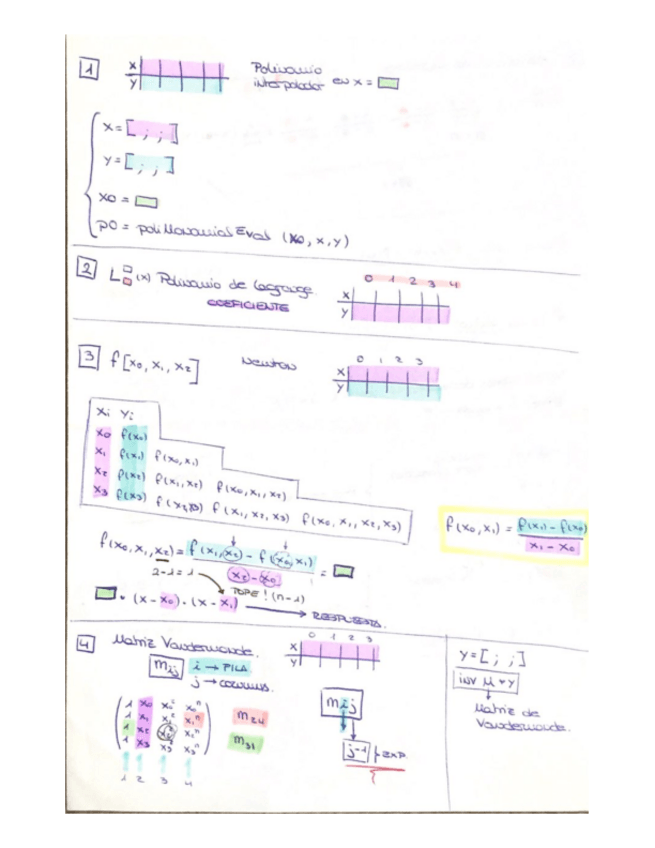 1 x y Polinomio interpolador en x =
x = [ ; ; ]
y = [ ; ; ]
x0 =
p0 = poliMonomialEval (x0, x, y)
2 L (x) Polinomio de Lagrange. 0 1 2 3 4
COEFICIENTE x y
3 f [x0, x1, x2] Newton 0 1 2 3 x y
xi yi
x0 f(x0)
x1 f(x1) f(x0,x1)
x2 f(x2) f(x1,x2) f(x0,x1,x2)
x3 f(x3) f(x2,x3) f(x1,x2,x3) f(x0,x1,x2,x3)
f(x0,x1) = f(x1) - f(x0)
x1 - x0
f(x0,x1,x2) = f(x1,x2) - f(x0,x1) =
x2 - x0
2-1=1 TOPE! (n-1)
· (x - x0) · (x - x1) → RESPUESTA.
4 Matriz Vandermonde. x y 0 1 2 3
mij i → FILA
j → columna.
1 x0 x0² x0ⁿ
1 x1 x1² x1ⁿ
1 x2 x2² x2ⁿ
1 x3 x3² x3ⁿ
1 2 3 4
m24
m31
mij
j-1 EXP.
y = [ ; ; ]
inv M * y
Matriz de
Vandermonde.